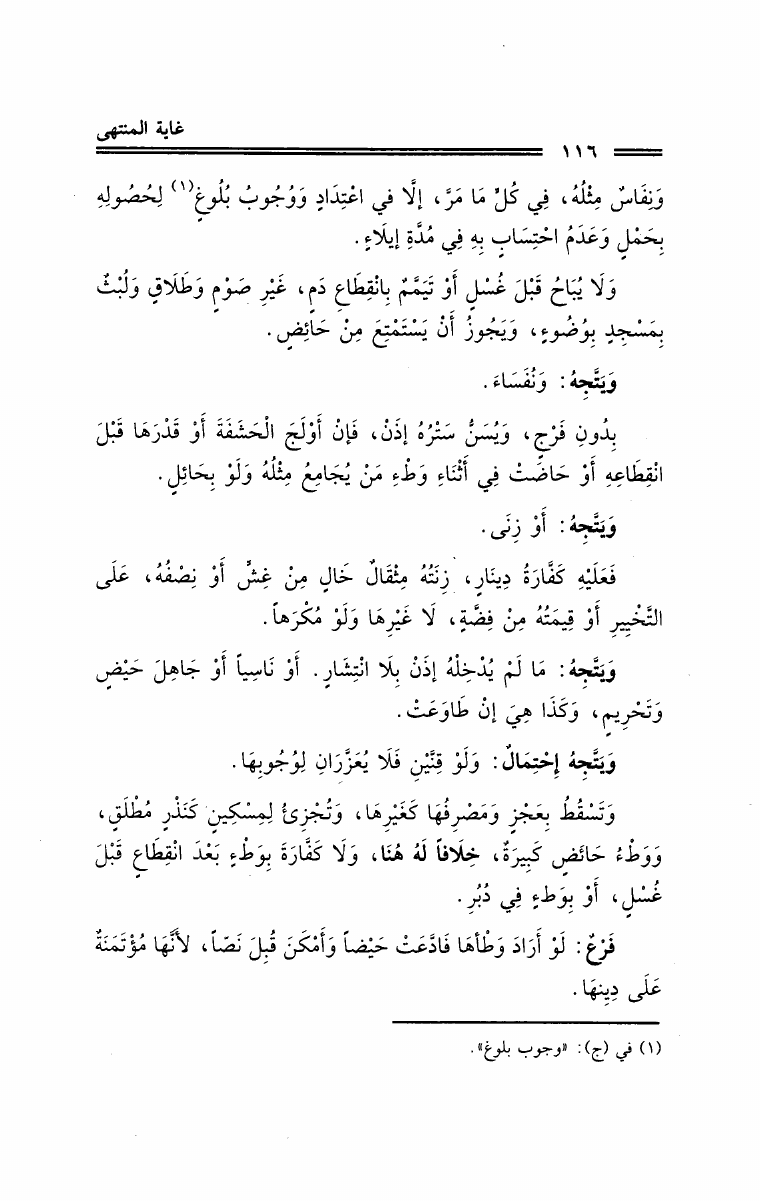 غاية المنتهى
١١٦
وَنِفَاسٌ مِثْلُهُ، فِي كُلِّ مَا مَرَّ، إلَّا في اعْتِدَادٍ وَوُجوبُ بُلُوغٍ(١) لِحُصُولِهِ
بِحَمْلٍ وَعَدَمُ احْتِسَابٍ بِهِ فِي مُدَّةِ إيلَاءٍ.
وَلَا يُبَاحُ قَبْلَ غُسْلٍ أَوْ تَيَمَّمٌ بِانْقِطَاعِ دَمٍ، غَيْرِ صَوْمٍ وَطَلَاقٍ وَلُبْثٌ
بِمَسْجِدٍ بِوُضُوءٍ، وَيَجُوزُ أَنْ يَسْتَمْتِعَ مِنْ حَائِضٍ.
وَيَتَّجِهُ: وَنُفَسَاءَ.
بِدُونِ فَرْجٍ، وَيُسَنُّ سَتْرُهُ إذَن، فَإنْ أَوْلَجَ الْحَشَفَةَ أَوْ قَدْرَهَا قَبْلَ
انْقِطَاعِهِ أَوْ حَاضَتْ فِي أَثْنَاءِ وَطْءِ مَنْ يُجَامِعُ مِثْلُهُ وَلَوْ بِحَائِلٍ.
وَيَتَّجِهُ: أَوْ زِنَى.
فَعَلَيْهِ كَفَّارَةُ دِينَارٍ، زِنَتُهُ مِثْقَالٌ خَالٍ مِنْ غِشٍّ أَوْ نِصْفُهُ، عَلَى
التَّخْيِيرِ أَوْ قِيمَتُهُ مِنْ فِضَّةٍ، لَا غَيْرِهَا وَلَوْ مُكْرَهاً.
وَيَتَّجِهُ: مَا لَمْ يُدْخِلْهُ إذَنْ بِلَا انْتِشَارٍ. أَوْ نَاسِياً أَوْ جَاهِلَ حَيْضٍ
وَتَحْرِيمٍ، وَكَذَا هِيَ إنْ طَاوَعَتْ.
وَيَتَّجِهُ إِحْتِمَالٌ: وَلَوْ قِنَّيْنِ فَلَا يُعَزَّرَانِ لِوُجُوبِهَا.
وَتَسْقُطُ بِعَجْزٍ وَمَصْرِفُهَا كَغَيْرِهَا، وَتُجْزِئُ لِمِسْكِينٍ كَنَذْرٍ مُطْلَقٍ،
وَوَطْءُ حَائضٍ كَبِيرَةٌ، خِلَافاً لَهُ هُنَا، وَلَا كَفَّارَةَ بِوَطْءٍ بَعْدَ انْقِطَاعٍ قَبْلَ
غُسْلٍ، أَوْ بِوَطءٍ فِي دُبُرِ.
فَرْعٌ: لَوْ أَرَادَ وَطْأَهَا فَادَّعَتْ حَيْضاً وَأَمْكَنَ قُبِلَ نَصّاً، لأَنَّهَا مُؤْتَمَنَةٌ
عَلَى دِينِهَا.
(١) في (ج): «وجوب بلوغ».